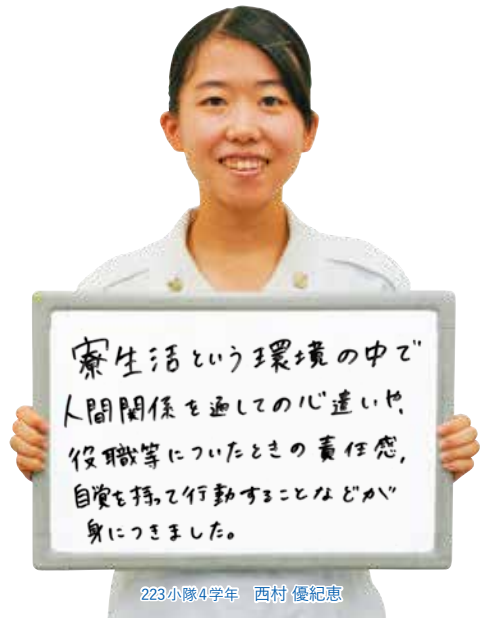 寮生活という環境の中で
人間関係を通しての心遣いや、
役職等についたときの責任感,
自覚を持って行動することなどが
身につきました。
223小隊4学年　西村 優紀恵